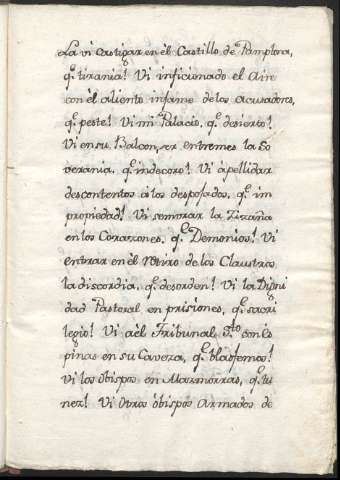 La vi castigar en èl Castillo de Pamplona,
q.e tirania! Vi inficionado el Aire
con èl aliento infame de los acusadores,
q.e peste! Vi mi Palacio, q.e desierto!
Vi en su Balcon, ser entremes la So
verania, q.e indecoro! Vi àpellidar
descontentos à los despojados, q.e im
propiedad! Vi sembrar la Zizaña
en los Corazones, q.e Demonios! Vi
entrar en èl retiro de los Claustros
la discordia, q.e desorden! Vi la Digni
dad Pastoral en prisiones, q.e sacri
legio! Vi aèl Tribunal S.to con Es
pinas en su Caveza, q.e blasfemos!
Vi los obispos en Mazmorras, q.e tu
nez! Vi otros obispos Armados de